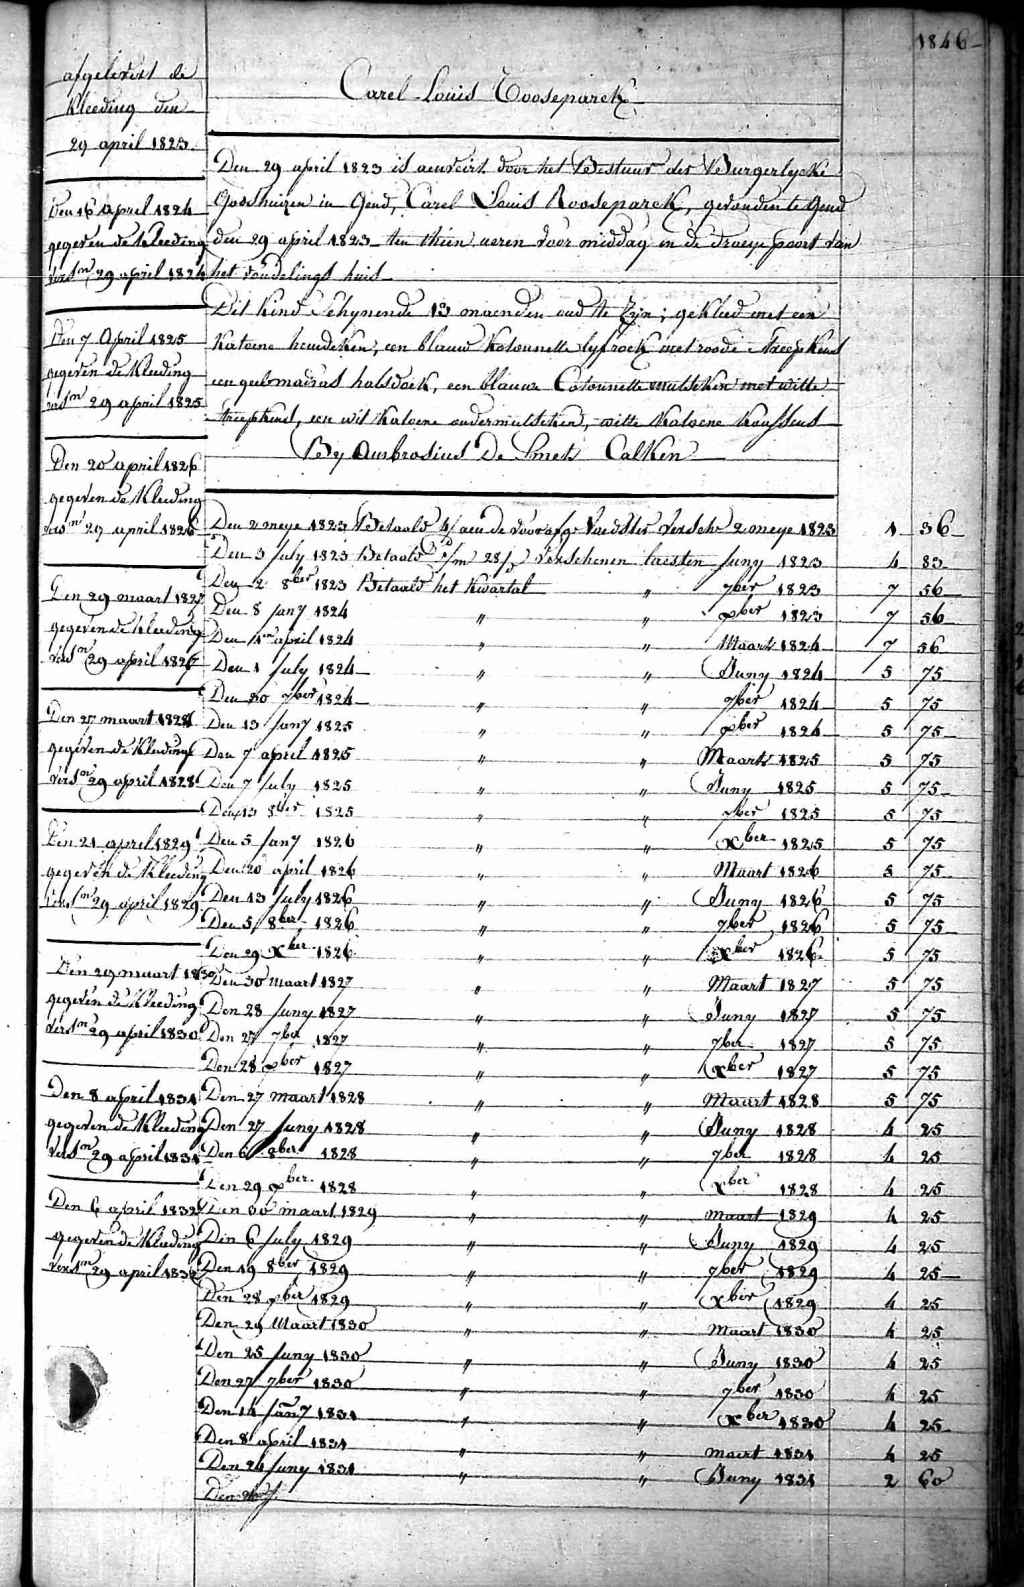 1846
Carel Louis Rooseparck
Den 29 april 1823 is aenveirt door het Bestuur der Burgerlyke
Godshuizen in Gend, Carel Louis Rooseparck, gevonden te Gend
den 29 april 1823 ten thien ueren voor middag in de draeypoort van
het vondelings huis
Dit kind schynende 13 maenden oud te zyn; gekleed met een
katoene hemdeken, een blauw kotonnette lyfrock met roode streepkens
een geele madras halsdoek, een blauw Cotonnette mutseken met witte
streepkens, een wit katoene ondermutseken, witte katoene koussens
By Ambrosius De Smet Calken
afgelevert de
kleeding den
29 april 1823
Den 16 April 1824
gegeven de kleeding
versn 29 april 1824
Den 7 April 1825
gegeven de kleeding
versn 29 april 1825
Den 20 april 1826
gegeven de kleeding
versn 29 april 1826
Den 29 maart 1827
gegeven de kleeding
versn 29 april 1827
Den 27 maart 1828
gegeven de kleeding
versn 29 april 1828
Den 21 april 1829
gegeven de kleeding
versn 29 april 1829
Den 29 maart 1830
gegeven de kleeding
versn 29 april 1830
Den 8 april 1831
gegeven de kleeding
versn 29 april 1831
Den 6 april 1832
gegeven de kleeding
versn 29 april 1832
Den 2 meye 1823 Betaald aen de voorsz Voedster versch 2 meye 1823 1 36
Den 3 july 1823 Betaald verschenen laesten juny 1823 4 83
Den 2 8ber 1823 Betaald het kwartal " 7ber 1823 7 56
Den 8 jany 1824 " " xber 1823 7 56
Den 1en april 1824 " " Maart 1824 7 56
Den 1 july 1824 " " Juny 1824 5 75
Den 30 7ber 1824 " " 7ber 1824 5 75
Den 13 jany 1825 " " xber 1824 5 75
Den 7 april 1825 " " Maart 1825 5 75
Den 7 july 1825 " " Juny 1825 5 75
Den 13 8ber 1825 " " 7ber 1825 5 75
Den 5 jany 1826 " " xber 1825 5 75
Den 20 april 1826 " " Maart 1826 5 75
Den 13 july 1826 " " Juny 1826 5 75
Den 5 8ber 1826 " " 7ber 1826 5 75
Den 29 xber 1826 " " xber 1826 5 75
Den 30 maart 1827 " " Maart 1827 5 75
Den 28 juny 1827 " " Juny 1827 5 75
Den 27 7ber 1827 " " 7ber 1827 5 75
Den 28 xber 1827 " " xber 1827 5 75
Den 27 maart 1828 " " Maart 1828 5 75
Den 27 juny 1828 " " Juny 1828 4 25
Den 6 8ber 1828 " " 7ber 1828 4 25
Den 29 xber 1828 " " xber 1828 4 25
Den 30 maart 1829 " " maart 1829 4 25
Den 6 july 1829 " " Juny 1829 4 25
Den 19 8ber 1829 " " 7ber 1829 4 25
Den 28 xber 1829 " " xber 1829 4 25
Den 29 Maart 1830 " " maart 1830 4 25
Den 25 juny 1830 " " Juny 1830 4 25
Den 27 7ber 1830 " " 7ber 1830 4 25
Den 14 jany 1831 " " xber 1830 4 25
Den 8 april 1831 " " maert 1831 4 25
Den 24 juny 1831 " " Juny 1831 2 60
Den